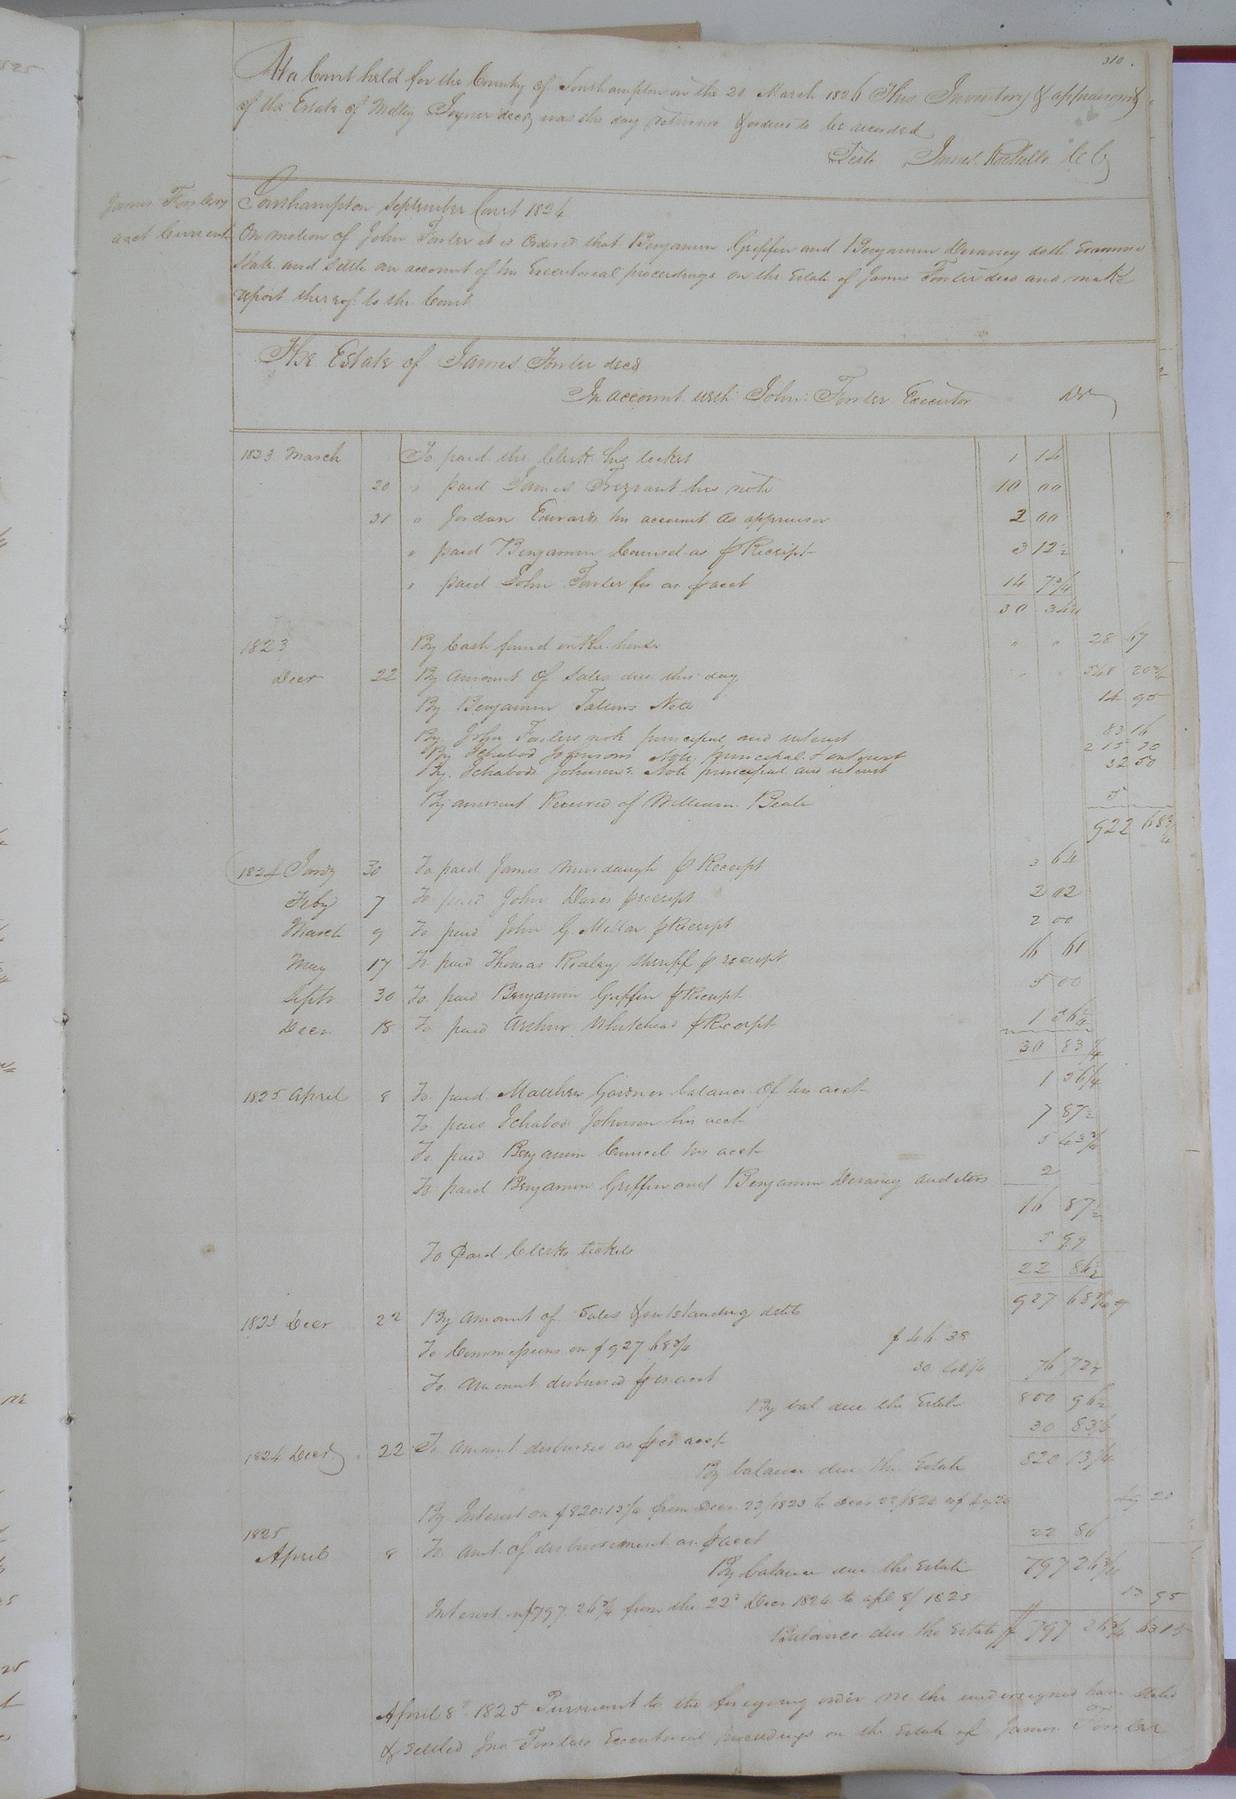 310.
At a Court held for the County of Southampton on the 20 March 1826 This Inventory & appraisment
of the Estate of Medley Joyner decd was this day returned & ordered to be recorded
Teste James Rochelle C C
James Fowlers
acct Current
Southampton September Court 1824
On motion of John Fowler it is Ordered that Benjamin Griffin and Benjamin Devaney doth Examine
State and Settle an account of his Executorial proceedings on the Estate of James Fowler decd and make
report thereof to the Court
The Estate of James Fowler decd
In account with John Fowler Executor Dr
1823 March To paid the Clerk his ticket 1 14
20 " paid James his note 10 00
31 " Jordan Edwards his account as appraiser 2 00
" paid Benjamin Council as pr Receipt 3 12½
" paid John Fowler for as pr acct 14 7¾
30 34¼
1823 By Cash found in the house " " 28 67
Decr 22 By Amount of Sales due this day 548 20¾
By Benjamin Note 14 95
By John Fowlers note principal and interest 83 16
By Ichabod Johnsons Note principal & interest 215 20
By Ichabod Johnsons Note principal and interest 32 50
By amount Received of William Beale 5
922 68¾
1824 Jany 30 To paid James Murdaugh pr Receipt 3 64
Feby 7 To paid John Davis pr receipt 2 02
March 9 To paid John G. Millar pr Receipt 2 00
May 17 To paid Thomas Ridley Sheriff pr receipt 16 61
Septr 30 To paid Benjamin Griffin pr Receipt 5 00
Decr 18 To paid Arthur Whitehead pr Receipt 1 56¼
30 83¼
1825 April 8 To paid Matthew Gardner balance of his acct 1 56¼
To paid Ichabod Johnson his acct 7 87½
To paid Benjamin Council his acct 5 43¾
To paid Benjamin Griffin and Benjamin Devaney auditors 2
16 87½
To paid Clerks tickets 5 99
22 86½
1823 Decr 22 By amount of Sales & outstanding debts 927 68¾
To Commissions on $927 68¾ $46 38
To amount disbursed pr acct 30 34¼ 76 72¼
By bal due the Estate 850 96½
1824 Decr 22 To amount disbursed as pr acct 30 83¼
By balance due the Estate 820 13¼
By Interest on $820.13¼ from Decr 22/1823 to Decr 22/1824 is $49.20 49 20
1825
April 8 To amt. of disbursement as pr acct 22 86
By balance due the Estate 797 26¾
Interest on $797.26¾ from the 22d Decr 1824 to apl 8/1825 13 95
Balance due the Estate $797 26¾ 63 15
April 8th 1825 Pursuant to the foregoing order we the undersigned have Stated
& Settled Jno Fowlers Executorial proceedings on the Estate of James Fowler